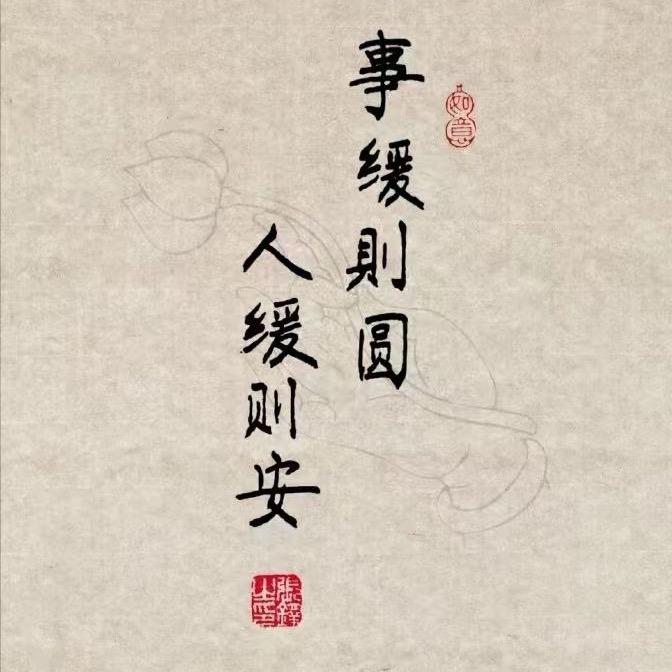 如意
事缓則圆
人缓则安